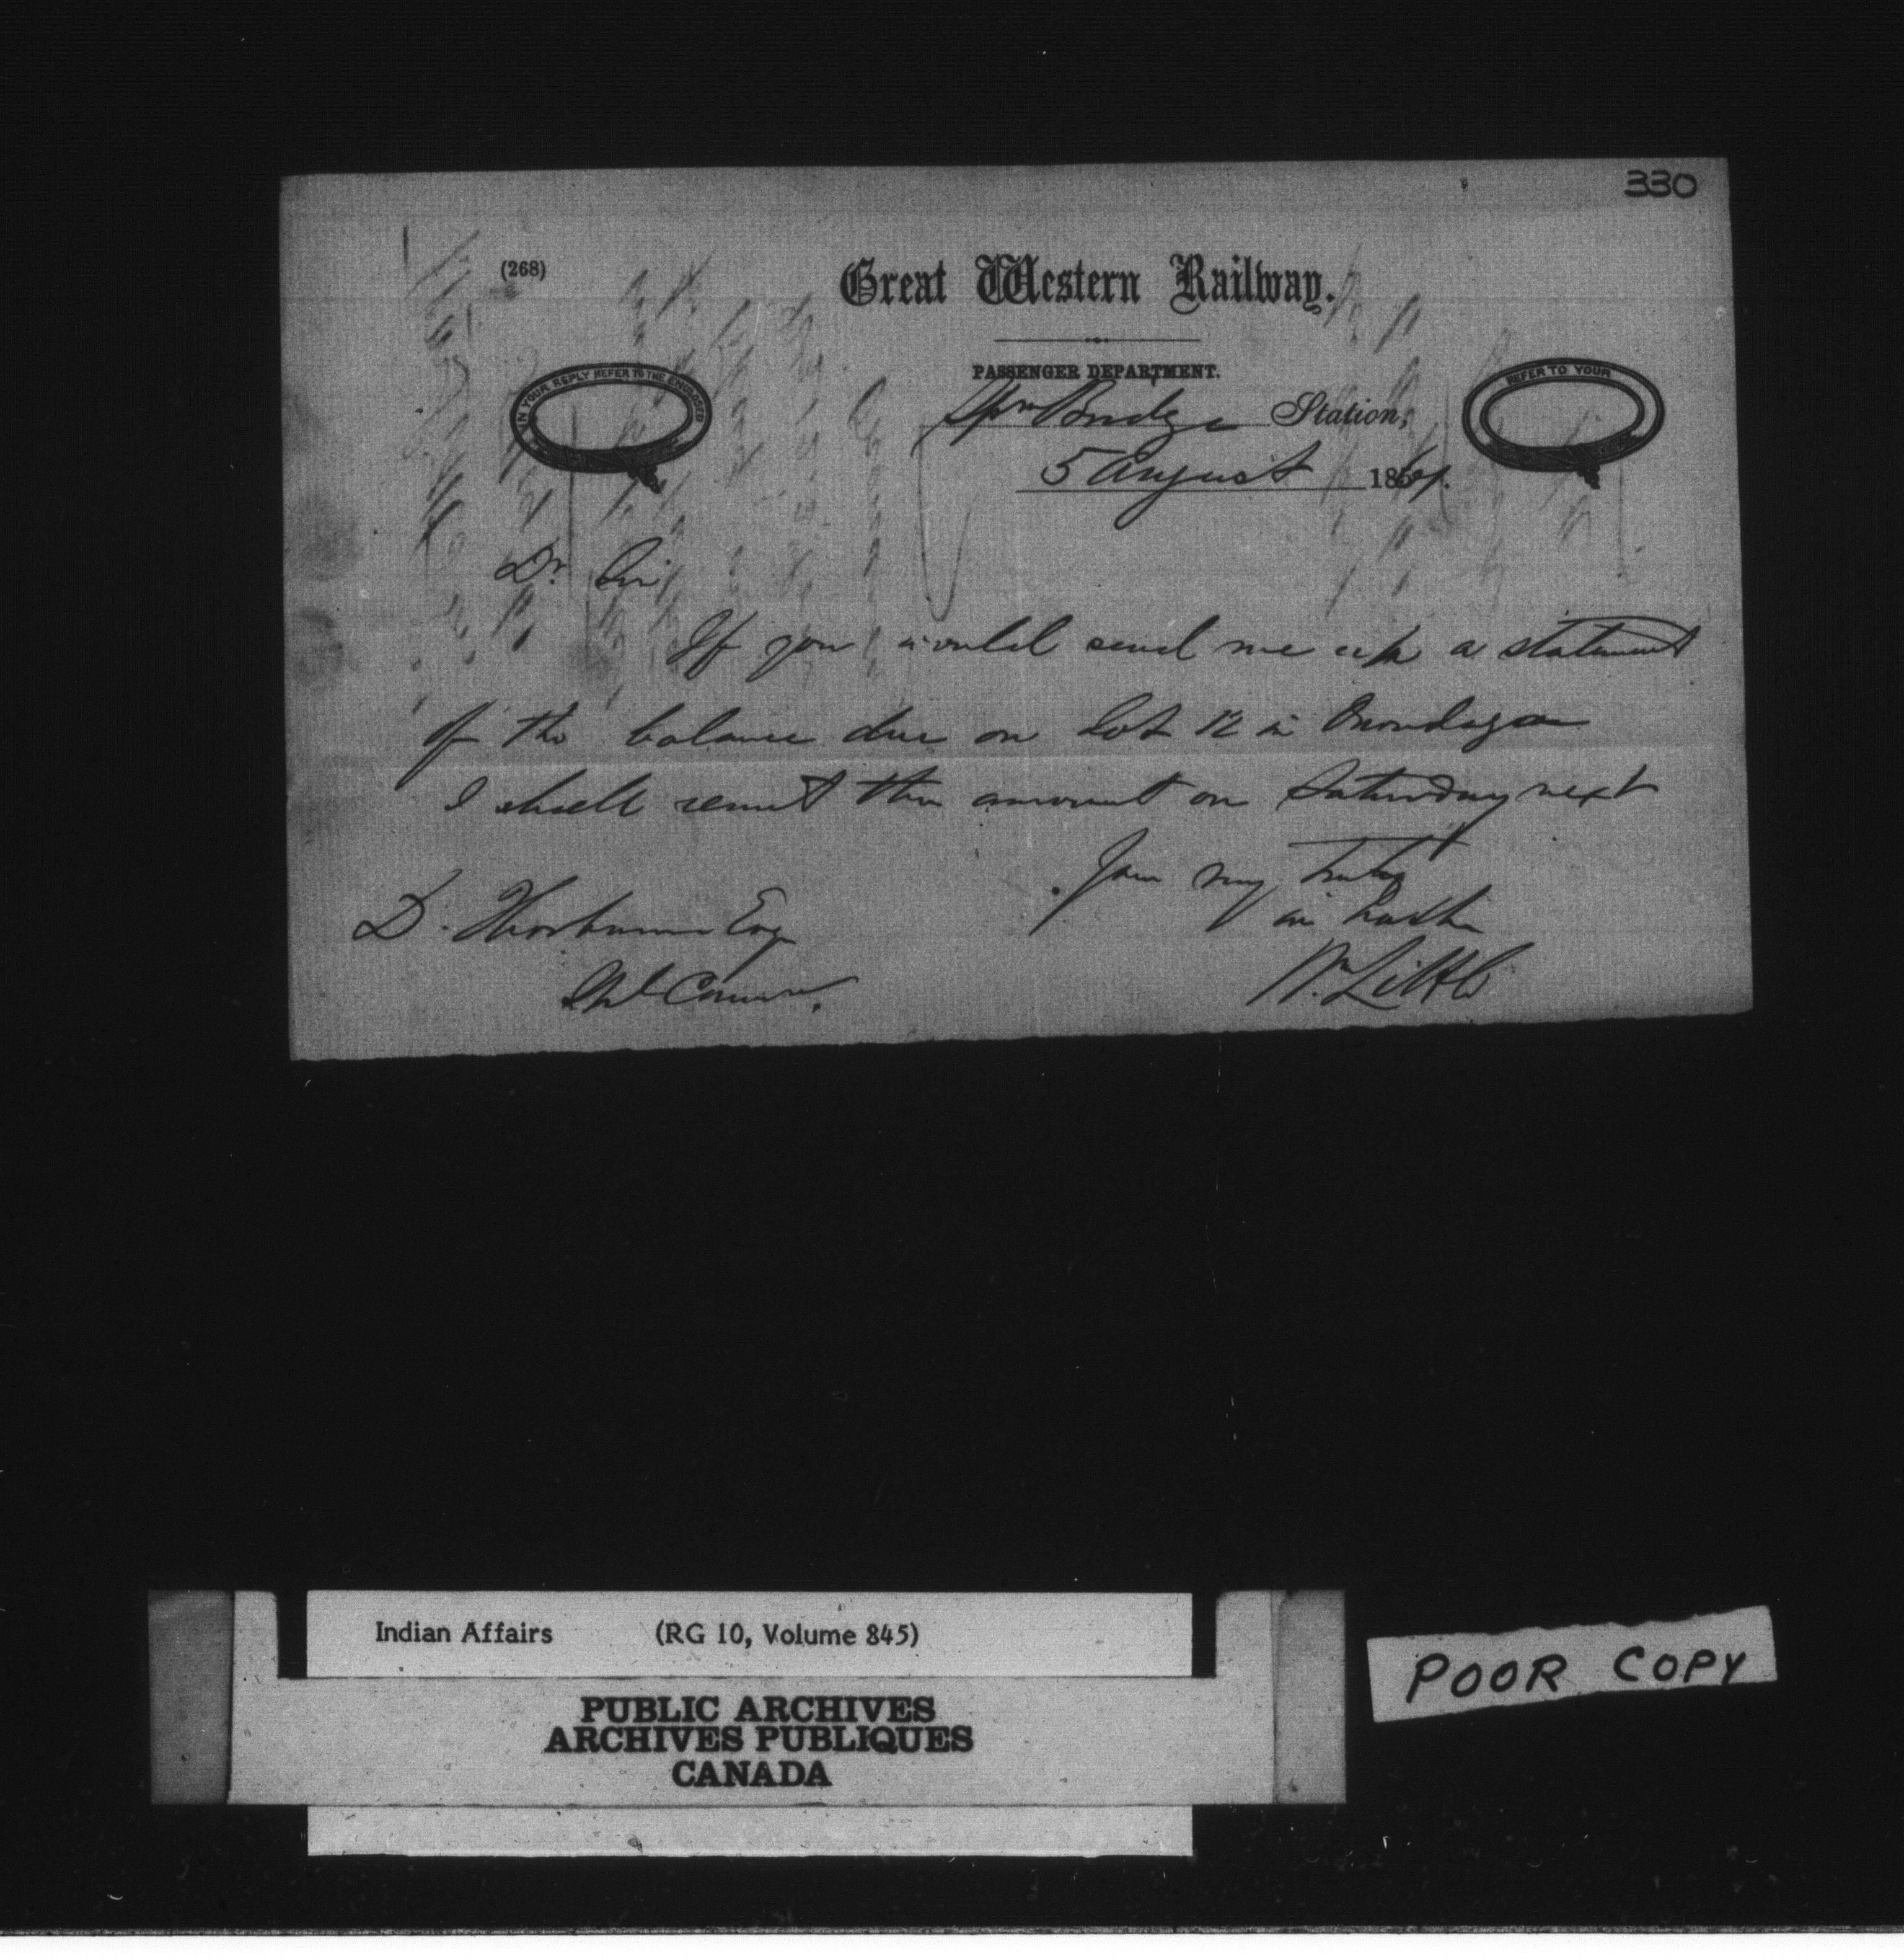 330
(268)
Great Western Railway.
PASSENGER DEPARTMENT.
IN YOUR REPLY REFER TO THE ENCLOSED
REFER TO YOUR
Spn Bridge Station,
5 August 1861.
Dr. Sir
If you would send me up a statement
of the balance due on Lot 12 in Onondaga
I shall remit the amount on Saturday next
Yours very truly
in haste
Wm Little
D. Thorburn Esq
Indian Affairs (RG 10, Volume 845)
PUBLIC ARCHIVES
ARCHIVES PUBLIQUES
CANADA
POOR COPY